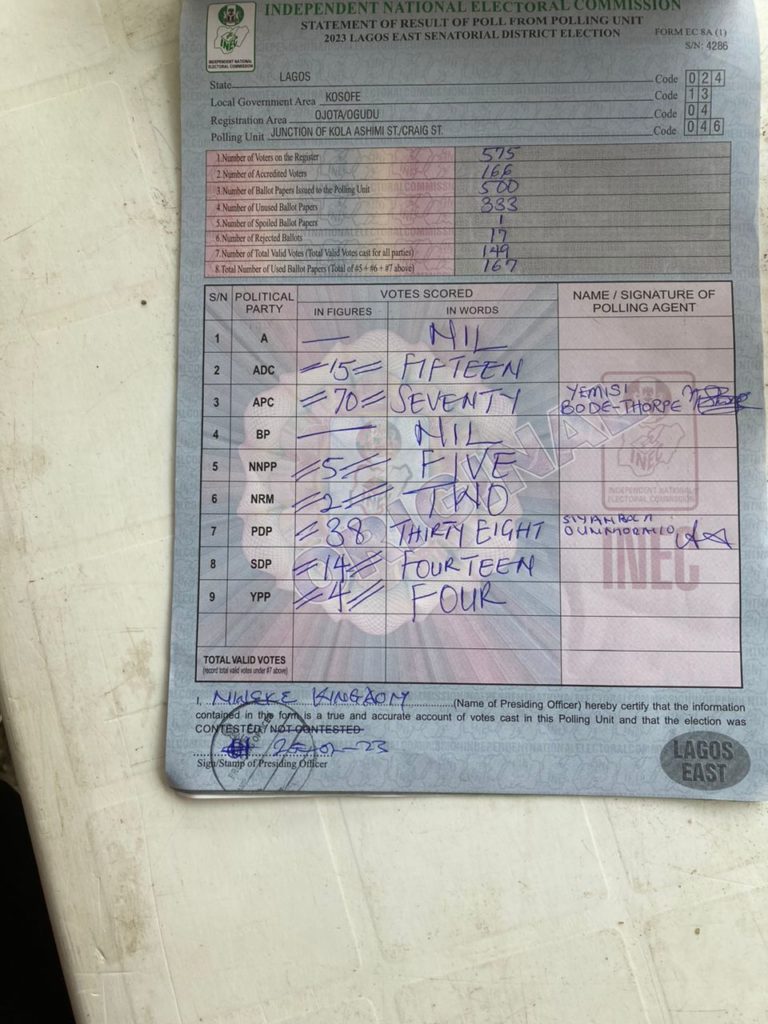 INDEPENDENT NATIONAL ELECTORAL COMMISSION
STATEMENT OF RESULT OF POLL FROM POLLING UNIT
2023 LAGOS EAST SENATORIAL DISTRICT ELECTION
FORM EC 8A (1)
S/N: 4286
INEC
INDEPENDENT NATIONAL ELECTORAL COMMISSION
State LAGOS Code 0 2 4
Local Government Area KOSOFE Code 1 3
Registration Area OJOTA/OGUDU Code 0 4
Polling Unit JUNCTION OF KOLA ASHIMI ST./CRAIG ST. Code 0 4 6
1.Number of Voters on the Register 575
2.Number of Accredited Voters 166
3.Number of Ballot Papers Issued to the Polling Unit 500
4.Number of Unused Ballot Papers 333
5.Number of Spoiled Ballot Papers 1
6.Number of Rejected Ballots 17
7.Number of Total Valid Votes (Total Valid Votes cast for all parties) 149
8.Total Number of Used Ballot Papers (Total of #5 + #6 + #7 above) 167
S/N POLITICAL PARTY VOTES SCORED NAME / SIGNATURE OF POLLING AGENT
IN FIGURES IN WORDS
1 A — NIL
2 ADC =15= FIFTEEN
3 APC =70= SEVENTY YEMISI BODE-THORPE
4 BP — NIL
5 NNPP =5= FIVE
6 NRM =2= TWO
7 PDP =38 THIRTY EIGHT
8 SDP =14= FOURTEEN
9 YPP =4= FOUR
ORIGINAL
INEC
INDEPENDENT NATIONAL ELECTORAL COMMISSION
INEC
TOTAL VALID VOTES
(record total valid votes under #7 above)
I, KINGDOM (Name of Presiding Officer) hereby certify that the information
contained in this form is a true and accurate account of votes cast in this Polling Unit and that the election was
CONTESTED / NOT CONTESTED
Sign/Stamp of Presiding Officer
LAGOS
EAST